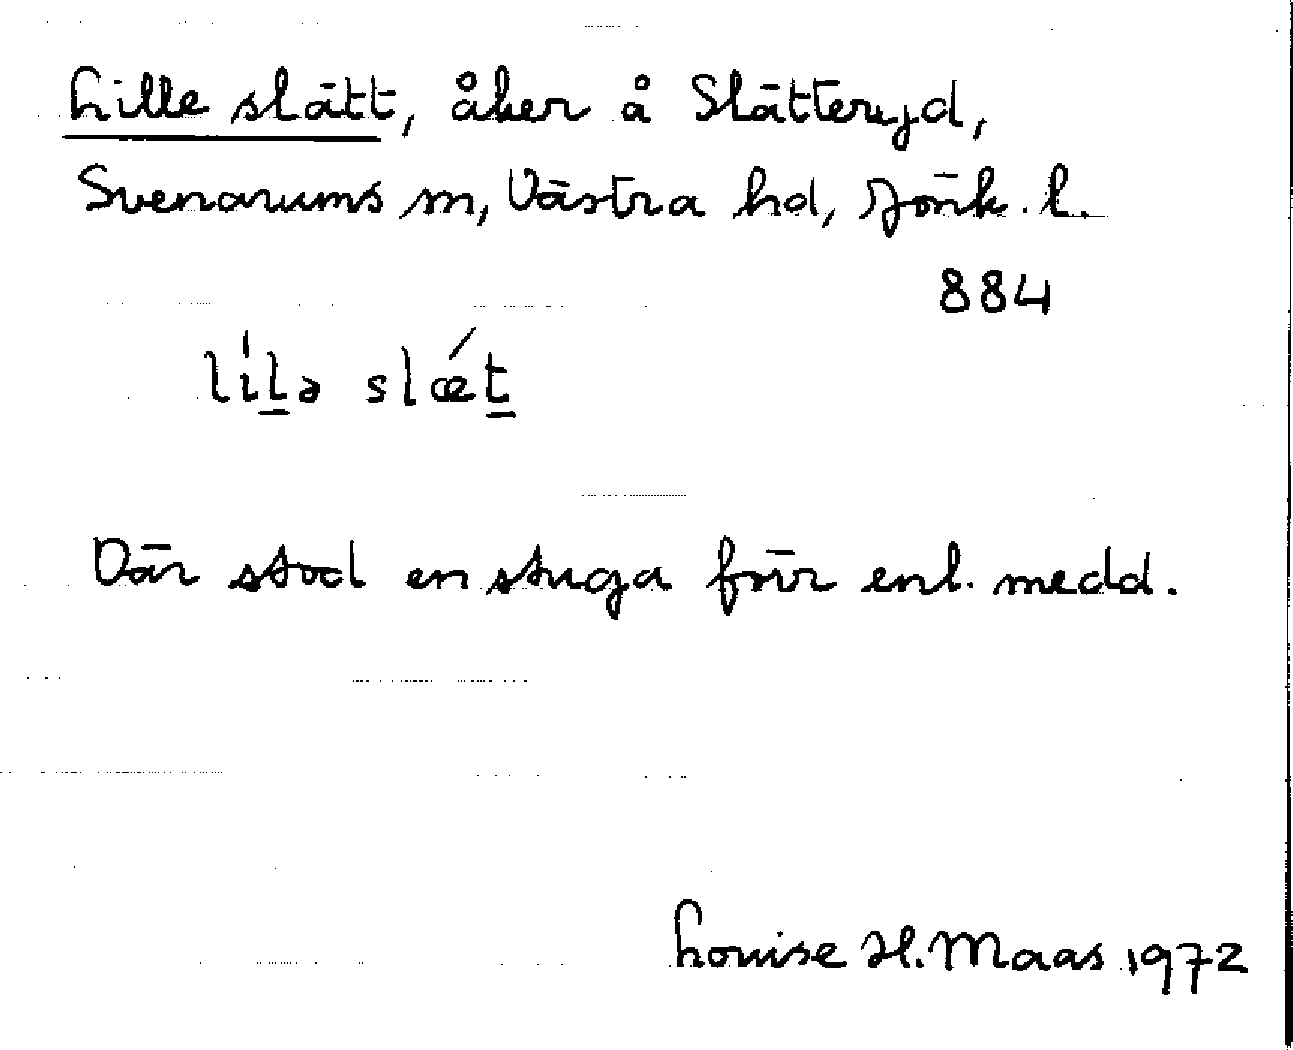 Lille slätt, åker å Slätteryd,
Svenarums sn, Västra hd, Jönk. l.
884
lı̍l̲ə slǽt̲
Där stod en stuga förr enl. medd.
Louise H. Maas 1972